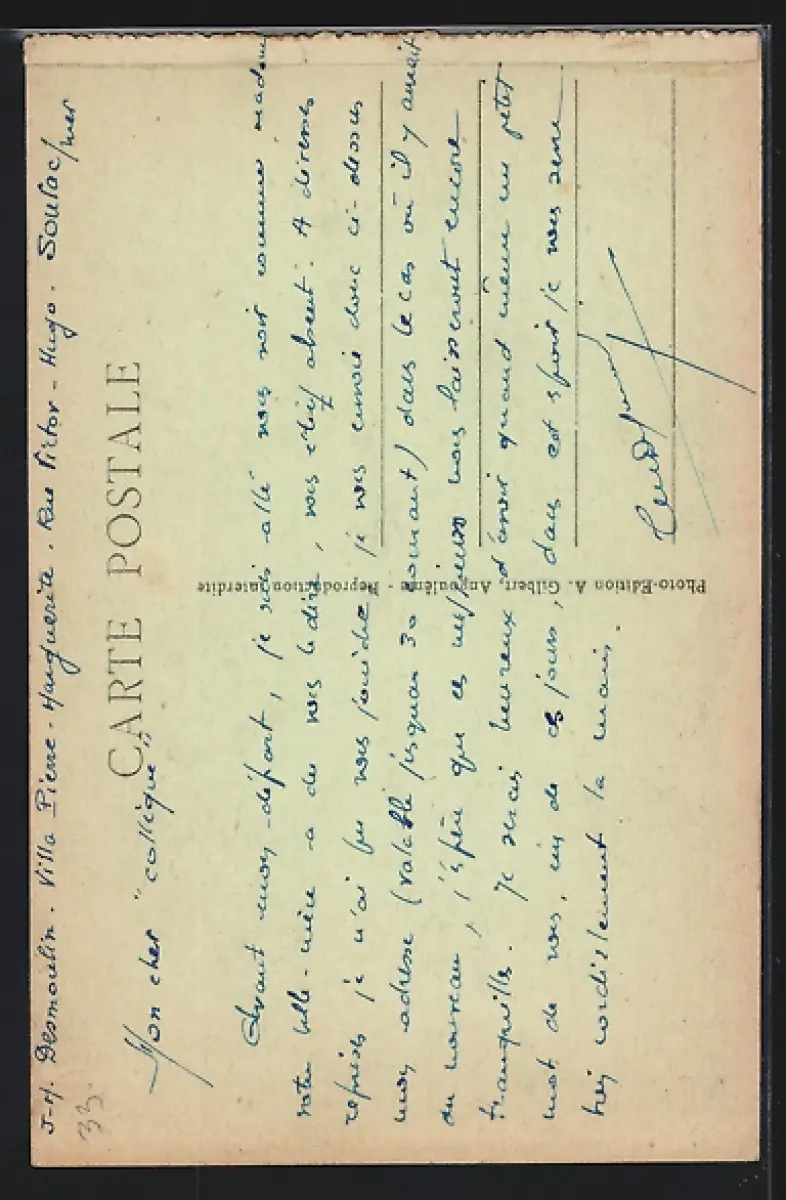 J-M. Desmoulin. Villa Pierre-Marguerite. Rue Victor-Hugo. Soulac/mer
33.
CARTE POSTALE
Mon cher "collègue"
Avant mon départ, je suis allé vous voir comme madame
votre belle-mère a du vous le dire, vous étiez absent. A diverses
reprises je n'ai pu vous joindre, je vous envoie donc ci-dessus
mon adresse (valable jusqu'au 30 courant) dans le cas où il y aurait
du nouveau, j'espère que ces messieurs nous laisseront encore
tranquilles. Je serais heureux d'avoir quand même un petit
mot de vous, un de ces jours, dans cet espoir je vous serre
très cordialement la main.
Photo-Edition A. Gilbert, Angoulême - Reproduction interdite